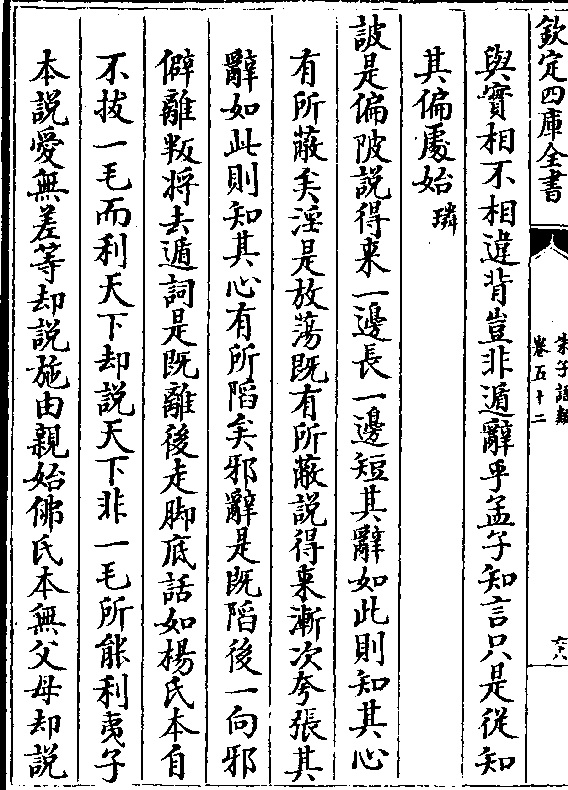 欽定四庫全書
朱子語類
卷五十二
六八
與實相不相違背豈非遁辭乎孟子知言只是從知
其偏處始璘
詖是偏陂說得來一邊長一邊短其辭如此則知其心
有所蔽矣淫是放蕩既有所蔽說得來漸次夸張其
辭如此則知其心有所陷矣邪辭是既陷後一向邪
僻離叛将去遁詞是既離後走脚底話如楊氏本自
不拔一毛而利天下却說天下非一毛所能利夷子
本說愛無差等却說施由親始佛氏本無父母却說